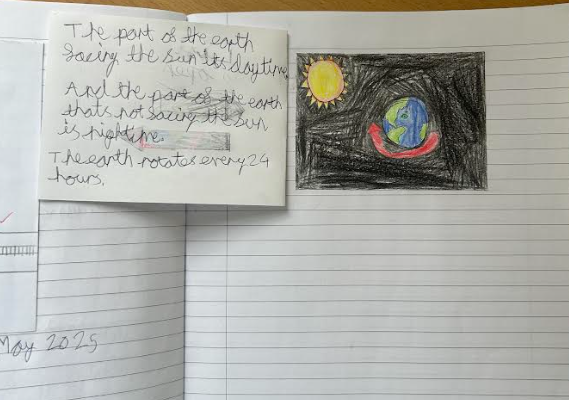 The part of the earth
facing the sun its daytime.
And the part of the earth
thats not facing the sun
is nightime.
The earth rotates every 24
hours.
May 2025